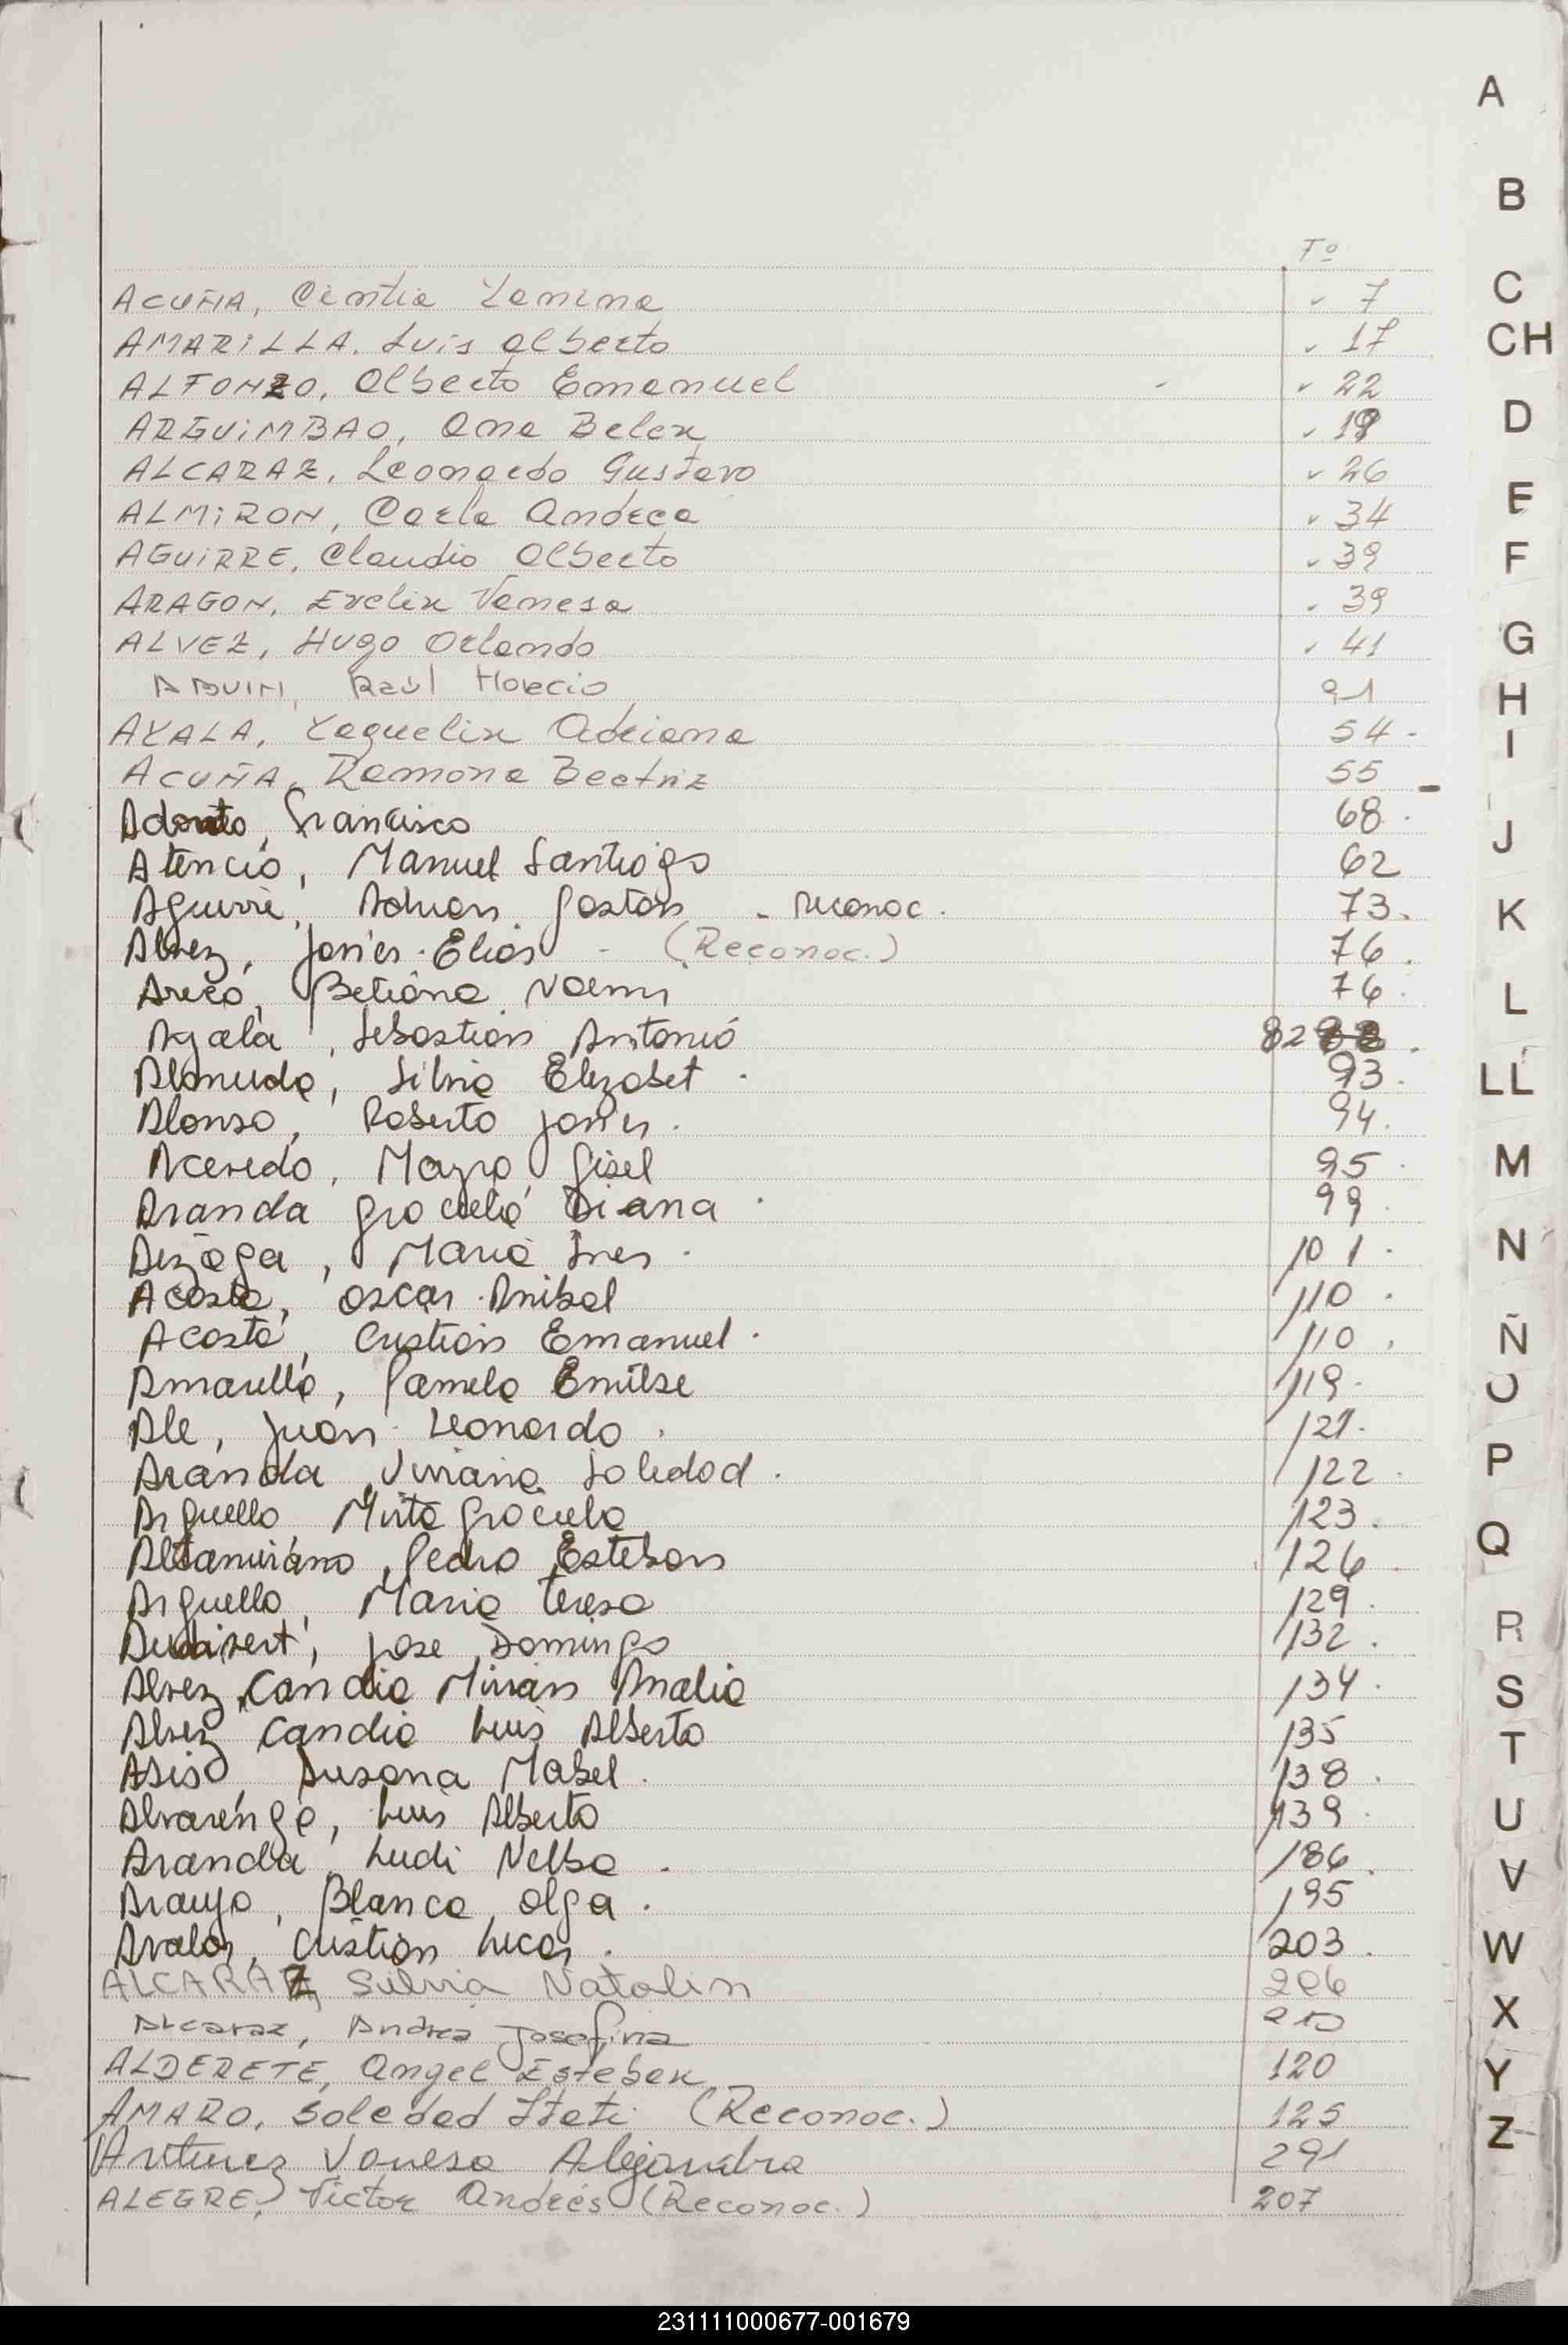 Fº
ACUÑA, Cintia Yanina ✓ 7
AMARILLA, Luis Alberto ✓ 17
ALFONZO, Alberto Emanuel - ✓ 22
ARGUIMBAO, Ana Belen ✓ 19
ALCARAZ, Leonardo Gustavo ✓ 26
ALMIRON, Carla Andrea ✓ 34
AGUIRRE, Claudio Alberto ✓ 39
ARAGON, Evelin Vanesa ✓ 39
ALVEZ, Hugo Orlando ✓ 41
Raúl Horacio 91
AYALA, Yaquelin Adriana 54 -
ACUÑA, Ramona Beatriz 55
Adorato, Francisco 68.
Atencio, Manuel Santiago 62
Aguirre, Adrian Gaston - reconoc. 73.
Alvez, Javier Elias - (Reconoc.) 76.
Areco, Betiana Noemi 76.
Ayala, Sebastian Antonio 82.
Silvia Elizabet. 93.
Alonso, Roberto Javier. 94.
Acevedo, Mayra Gisel 95.
Aranda Graciela Diana. 99.
Maria Ines. 101.
Acosta, Oscar Anibal 110.
Acosta, Cristian Emanuel. 110.
Amarilla, Pamela Emilse 119.
Ale, Juan Leonardo. 121.
Aranda, Viviana Soledad. 122.
Arguello Mirta Graciela 123.
Altamirano, Pedro Esteban 126.
Arguello, Maria Teresa 129.
Jose Domingo 132.
Alvez, Candia Mirian Analia 134.
Alvez Candia Luis Alberto 135
Asis, Susana Mabel. 138.
Alvarenga, Luis Alberto 139.
Aranda, Ludi Nelba. 186.
Araujo, Blanca Olga. 195
Avalos, Cristian Lucas. 203.
ALCARAZ, Silvia Natalin 206
Alcaraz, Andrea Josefina 210
ALDERETE, Angel Esteban 120
AMARO, Soledad Itati (Reconoc.) 125
Antunez Vanesa Alejandra 291
ALEGRE, Victor Andrés (Reconoc.) 207
A
B
C
CH
D
E
F
G
H
I
J
K
L
LL
M
N
Ñ
O
P
Q
R
S
T
U
V
W
X
Y
Z
231111000677-001679